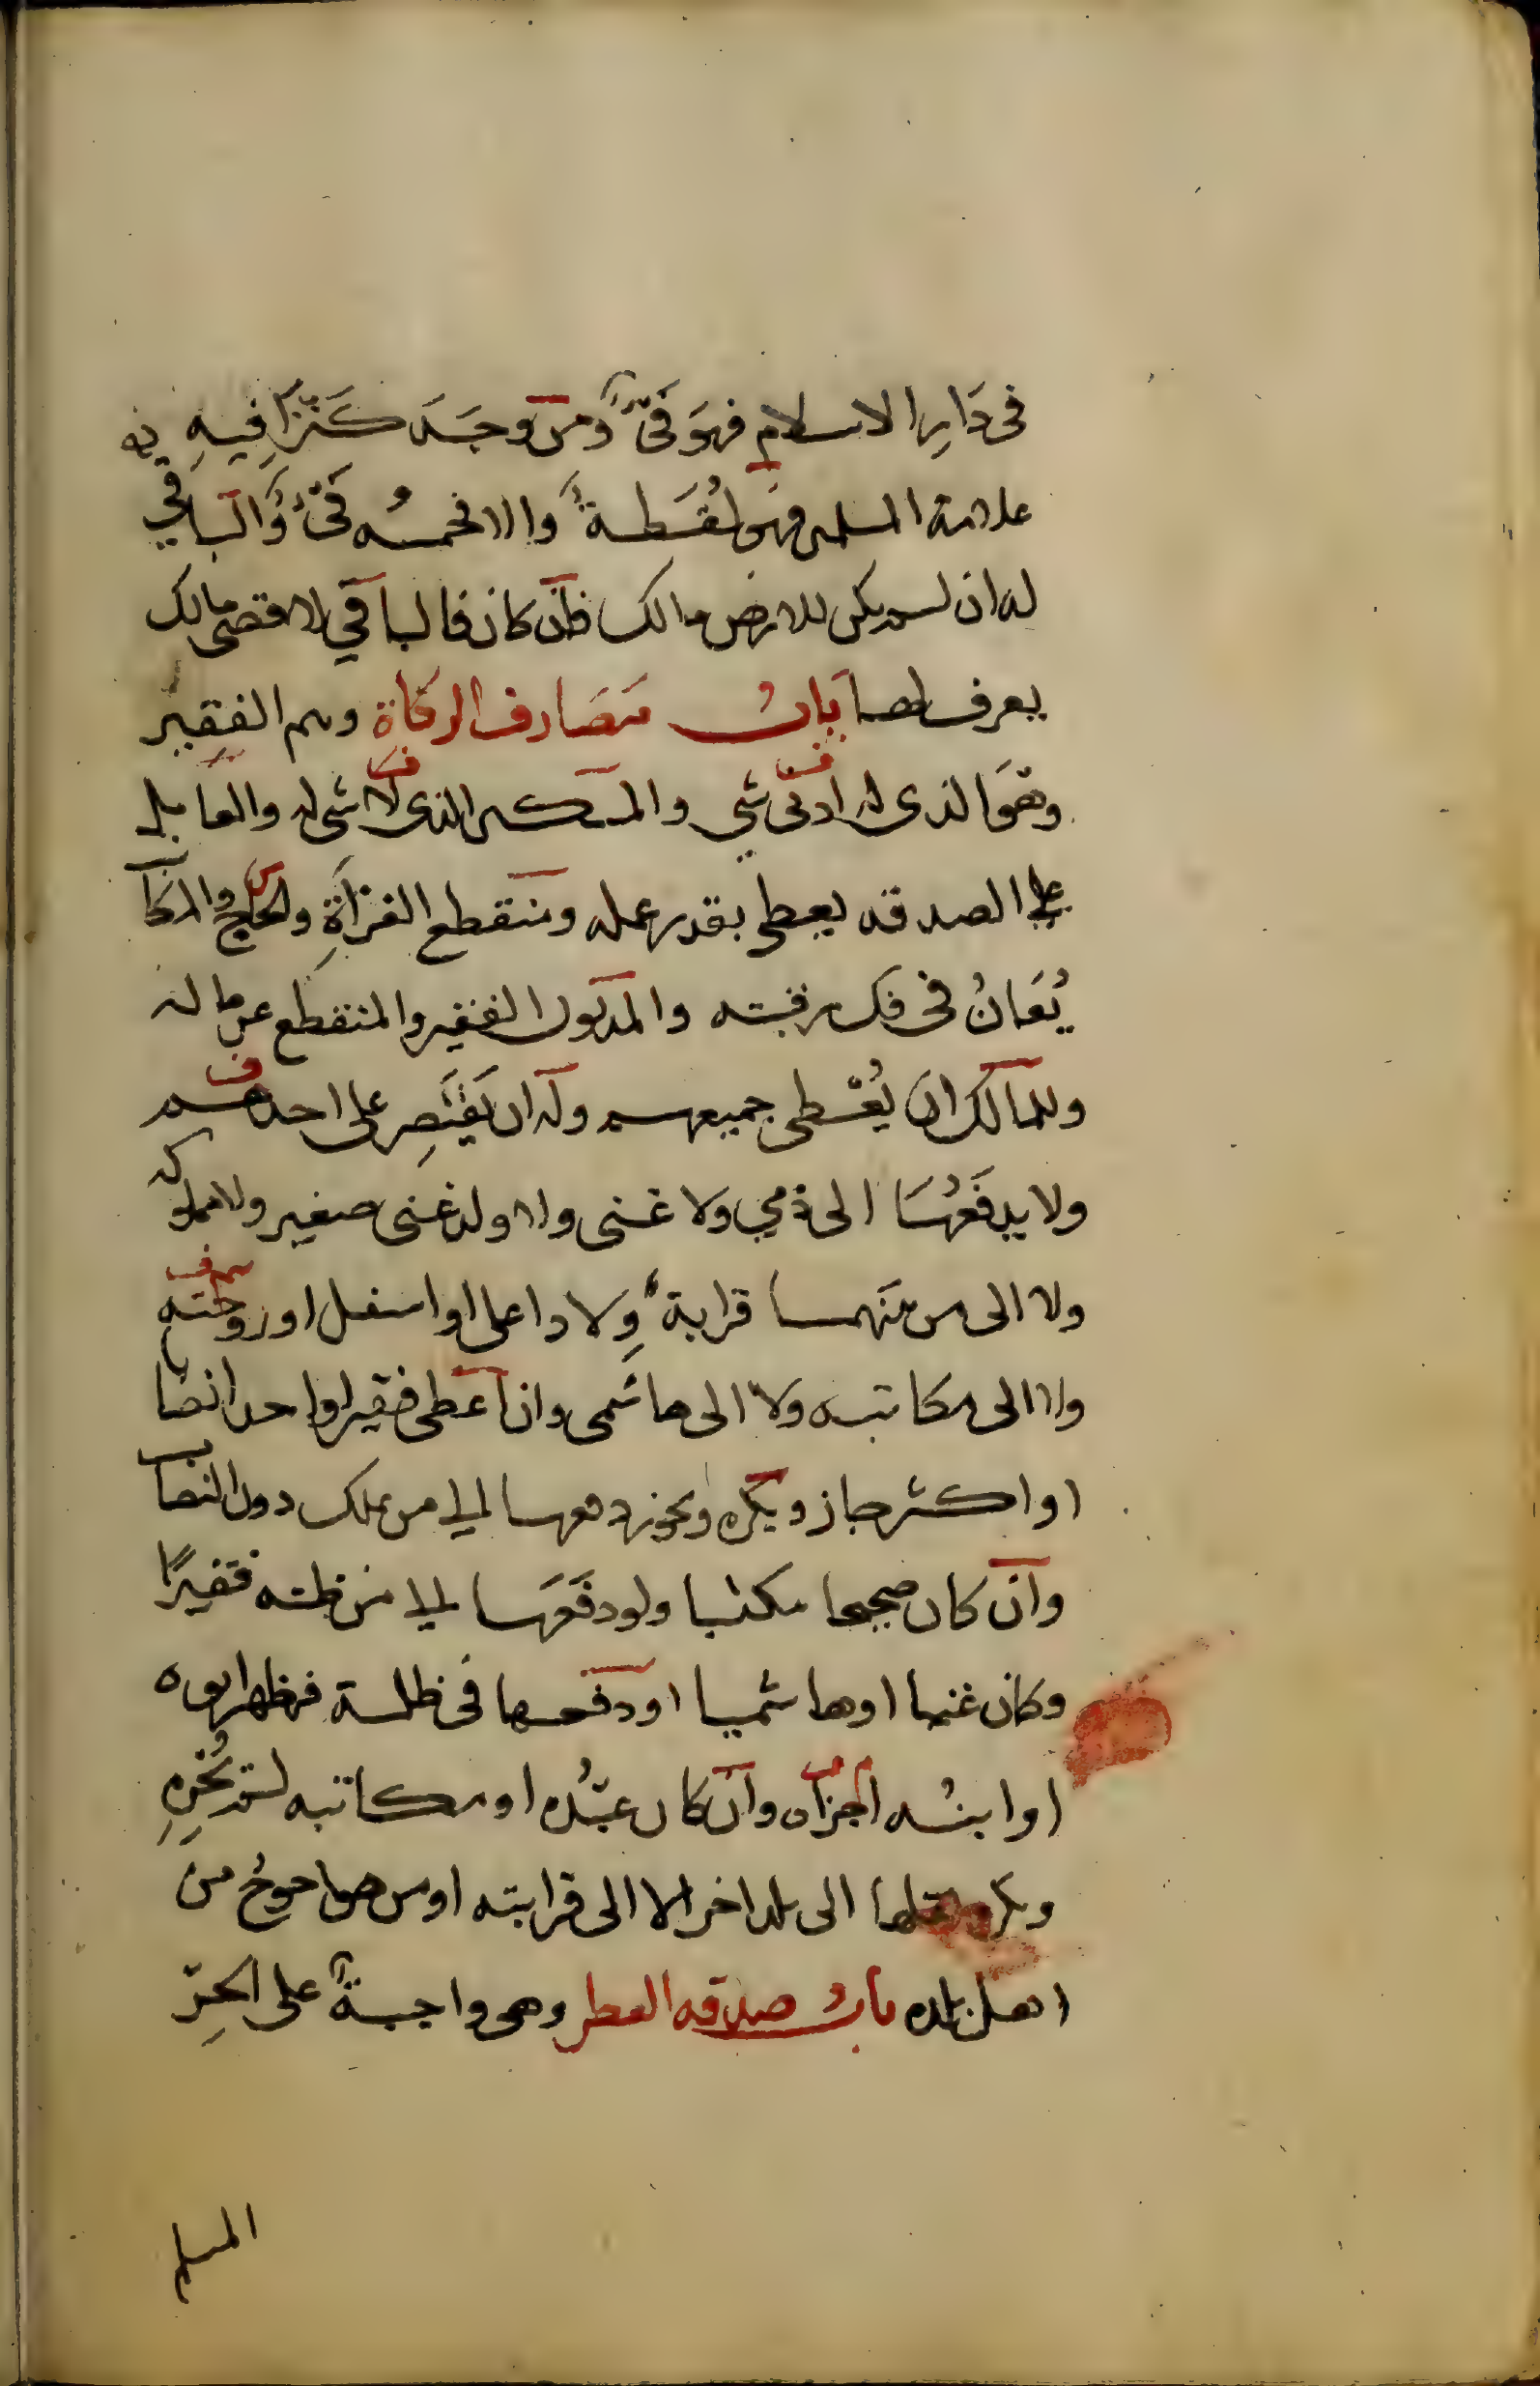 فى دَارِ الاسلام فهوَ فَىْءٌ وَمن وجَدَ كَنْزًا فِيهِ فيه
علامة المسلمين فهو لُقَطةٌ وَالا فخمسُه فَىْءٌ وَالبَاقي
له ان لم يكن للارض مالك فاِن كان فالباقي لاقصى مالك
يعرف لها بَابُ مَصَارف الزكاة وهم الفقير
وهوَ الذى له ادنى شي والمسكين الذى لا شى له والعامل
على الصدقه يعطى بقدر عمله ومنقطع الغزاةِ والحاج والمكاتب
يُعَانُ فى فك رقبته والمديون الفقير والمنقطع عن ماله
وللمالك ان يُعْطى جميعهم وله ان يَقْتَصِر على احدهم
ولا يدفَعُهَا الى ذمي ولا غنى ولا ولد غنى صغير ولا مملوكه
ولا الى من بينهما قرابةُ وِلاد اعلى او اسفل او زوجته
ولا الى مكاتبه ولا الى هاشمى وان اعطى فقيرا واحدا نصابا
او اكثر جاز ويكره ويجوز دفعها الي من يملك دون النصاب
وان كان صحيحا مكتسبا ولو دفَعَها الي من ظنه فقيرًا
وكان غنيا او هاشميا او دفعها فى ظلمة فظهر ابوه
او ابنُه اجزاه وان كان عبْدُه او مكاتبه لم يُجْزِهِ
ويكره نقلها الى بلد اخر الا الى قرابته او من هو احوجُ من
اهل بلده باب صدقه الفطر وهى واجبةٌ على الحرِّ
المسلم